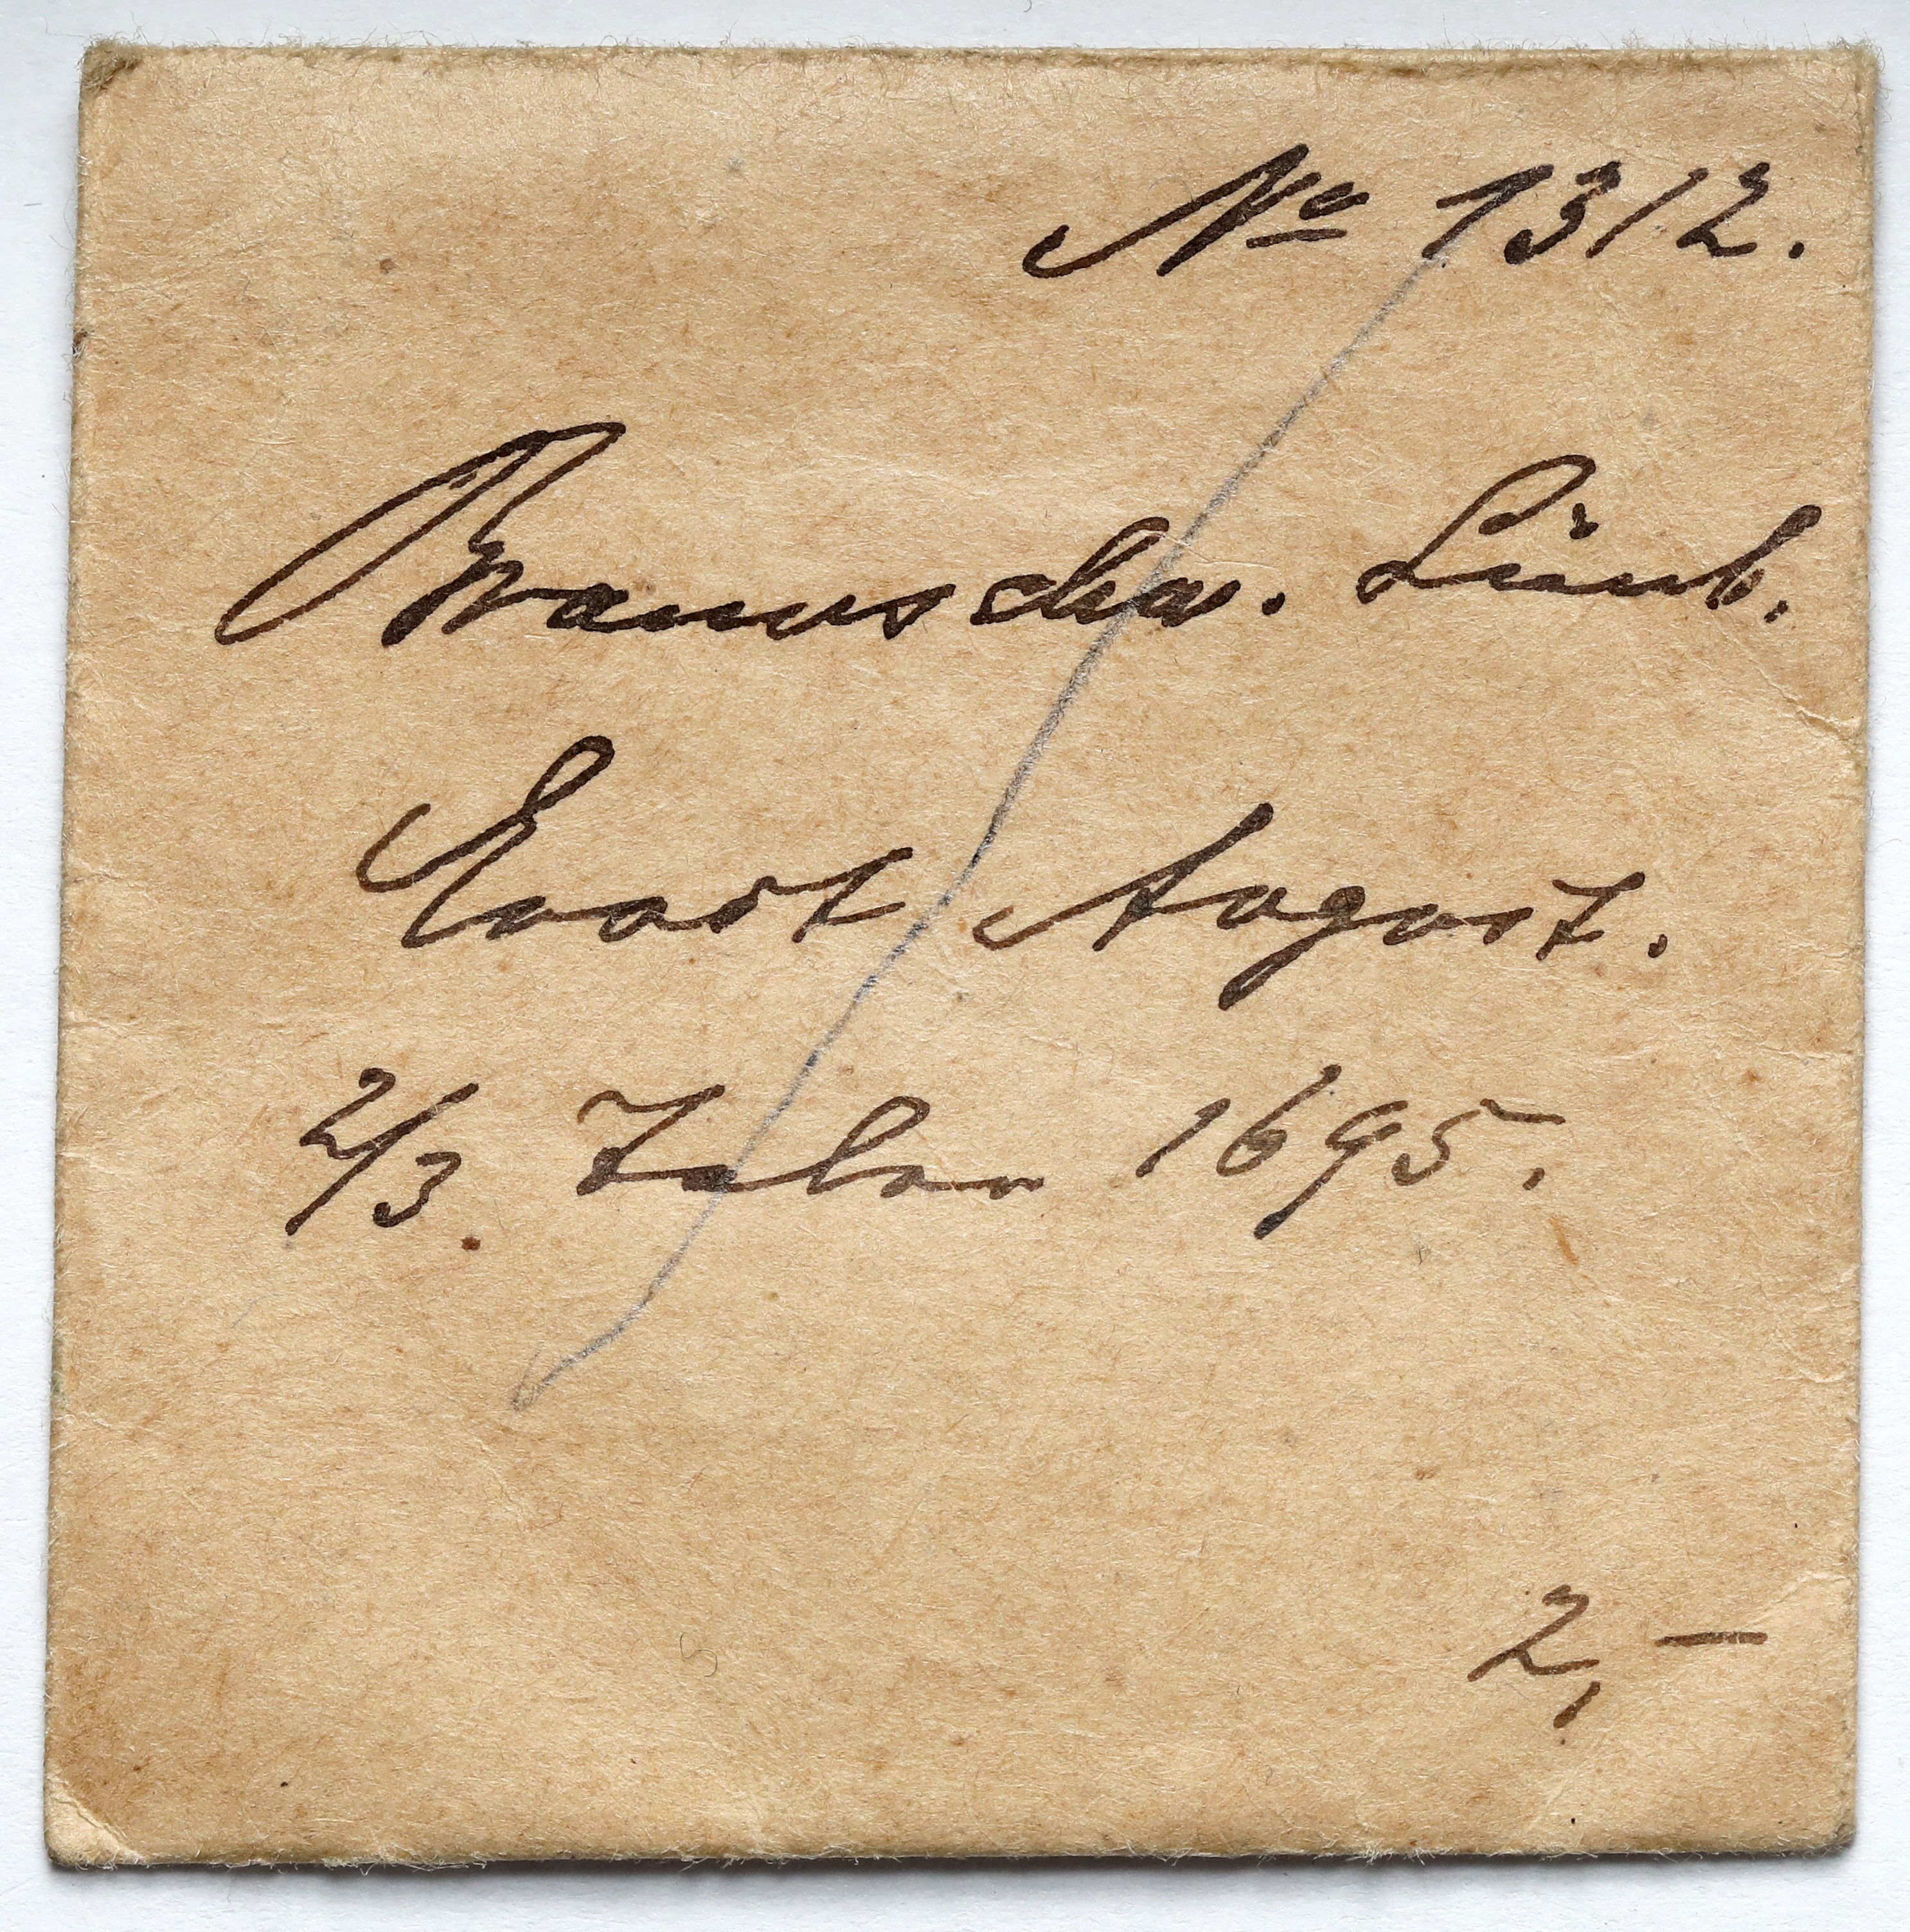 No 1312.
Braunschw. Lüneb.
Ernst August.
2/3 Taler 1695.
2,—